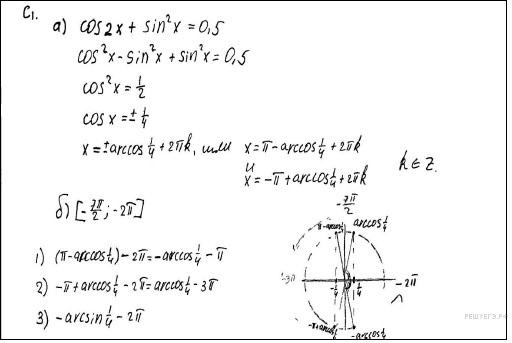 C1.
а) cos2x + sin²x = 0,5
cos²x - sin²x + sin²x = 0,5
cos²x = 1/2
cosx = ± 1/4
x = ± arccos 1/4 + 2πk, или x = π - arccos 1/4 + 2πk
и
x = -π + arccos 1/4 + 2πk
k ∈ Z.
б) [-7π/2; -2π]
1) (π - arccos 1/4) - 2π = -arccos 1/4 - π
2) -π + arccos 1/4 - 2π = arccos 1/4 - 3π
3) -arcsin 1/4 - 2π
-7π/2
π - arccos 1/4
arccos 1/4
-3π
-1/4
1/4
-2π
-π + arccos 1/4
-arccos 1/4
РЕШУЕГЭ.РФ